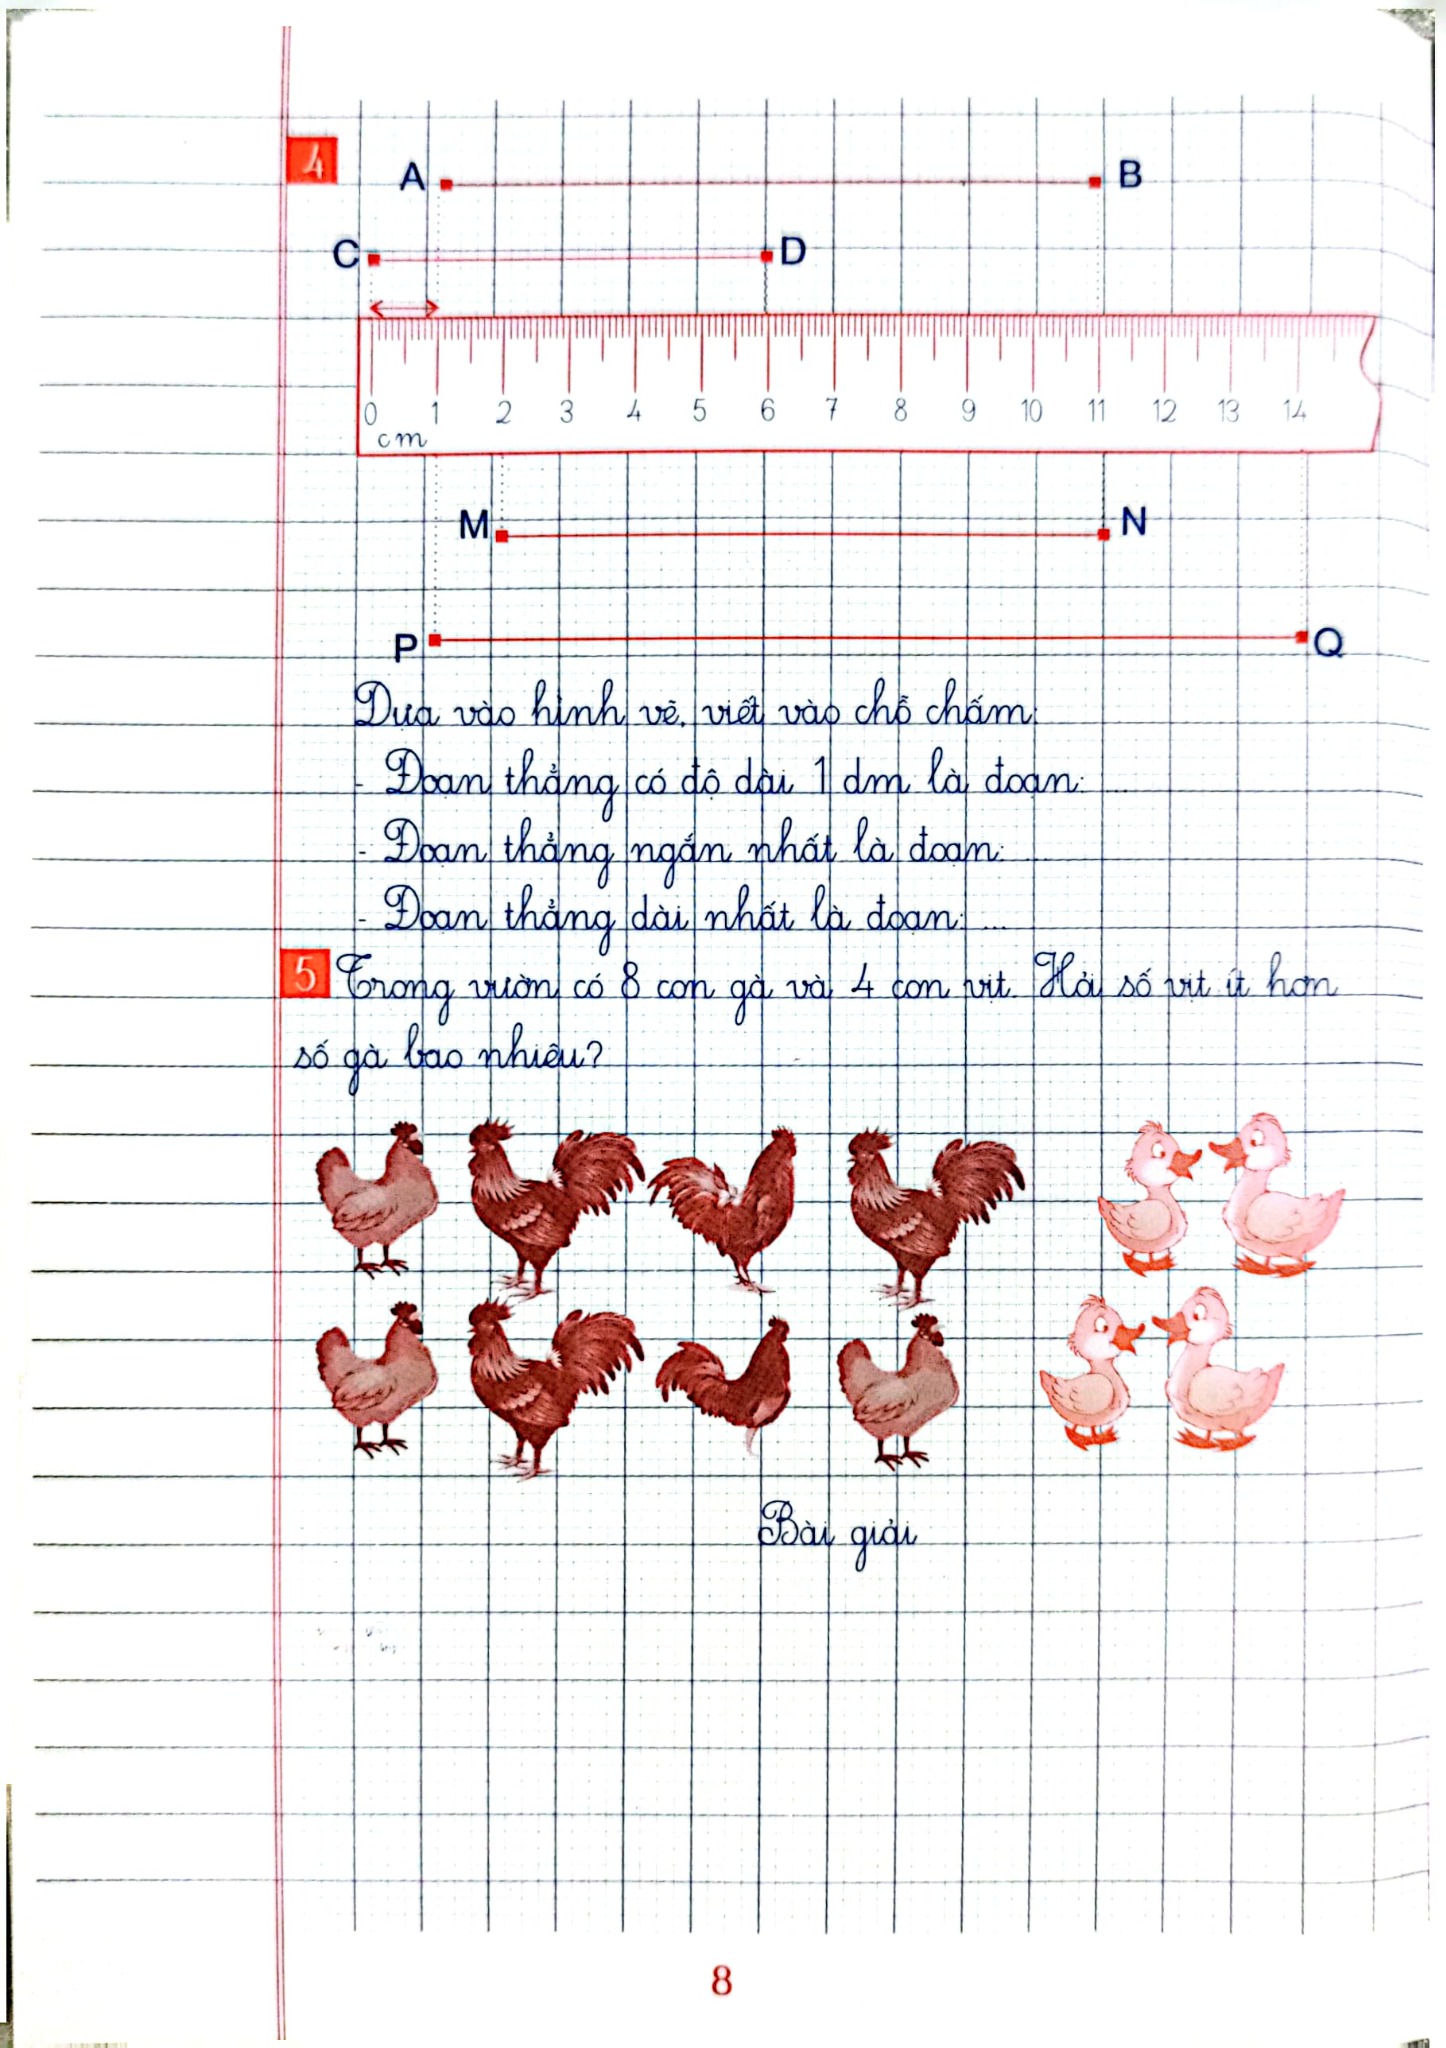 4
A B
C D
0 1 2 3 4 5 6 7 8 9 10 11 12 13 14
cm
M N
P Q
Dựa vào hình vẽ, viết vào chỗ chấm:
- Đoạn thẳng có độ dài 1 dm là đoạn: ...
- Đoạn thẳng ngắn nhất là đoạn: ...
- Đoạn thẳng dài nhất là đoạn: ...
5 Trong vườn có 8 con gà và 4 con vịt. Hỏi số vịt ít hơn
số gà bao nhiêu?
Bài giải
8